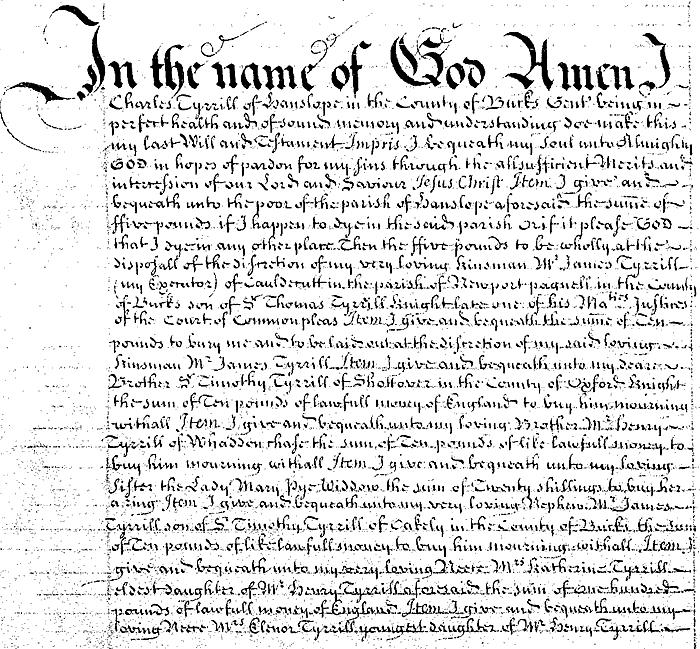 In the name of God Amen I
Charles Tyrrill of Hanslope in the County of Bucks Gent being in
perfect health and of sound memory and understanding doe make this
my last Will and Testament Impris I bequeath my soul unto Almighty
GOD in hopes of pardon for my sins through the allsufficient Merits and
intercession of our Lord and Saviour Jesus Christ Item I give and
bequeath unto the poor of the parish of Hanslope aforesaid the summe of
ffive pounds if I happen to dye in the said parish or if it please GOD
that I dye in any other place Then the ffive pounds to be wholly at the
disposall of the discretion of my very loving kinsman Mr James Tyrrill
(my Executor) of Cauldecutt in the parish of Newport pagnell in the County
of Bucks son of Sr Thomas Tyrrill Knight late one of his Maties Justices
of the Court of Common pleas Item I give and bequeath the summe of Ten
pounds to bury me and to be laid out at the discretion of my said loving
kinsman Mr James Tyrrill Item I give and bequeath unto my deare
Brother Sr Timothy Tyrrill of Shottover in the County of Oxford Knight
the sum of Ten pounds of lawfull money of England to buy him mourning
withall Item I give and bequeath unto my loving Brother Mr Henry
Tyrrill of Whaddon chase the sum of Ten pounds of like lawfull money to
buy him mourning withall Item I give and bequeath unto my loving
Sister the Lady Mary Pye Widdow the sum of Twenty shillings to buy her
a ring Item I give and bequeath unto my very loving Nephew Mr James
Tyrrill son of Sr Timothy Tyrrill of Oakely in the County of Bucks the sum
of Ten pounds of like lawfull money to buy him mourning withall Item I
give and bequeath unto my very loving Neece Mrs Katherine Tyrrill
eldest daughter of Mr Henry Tyrrill aforesaid the sum of one hundred
pounds of lawfull money of England Item I give and bequeath unto my
loving Neece Mrs Elenor Tyrrill youngest daughter of Mr Henry Tyrrill